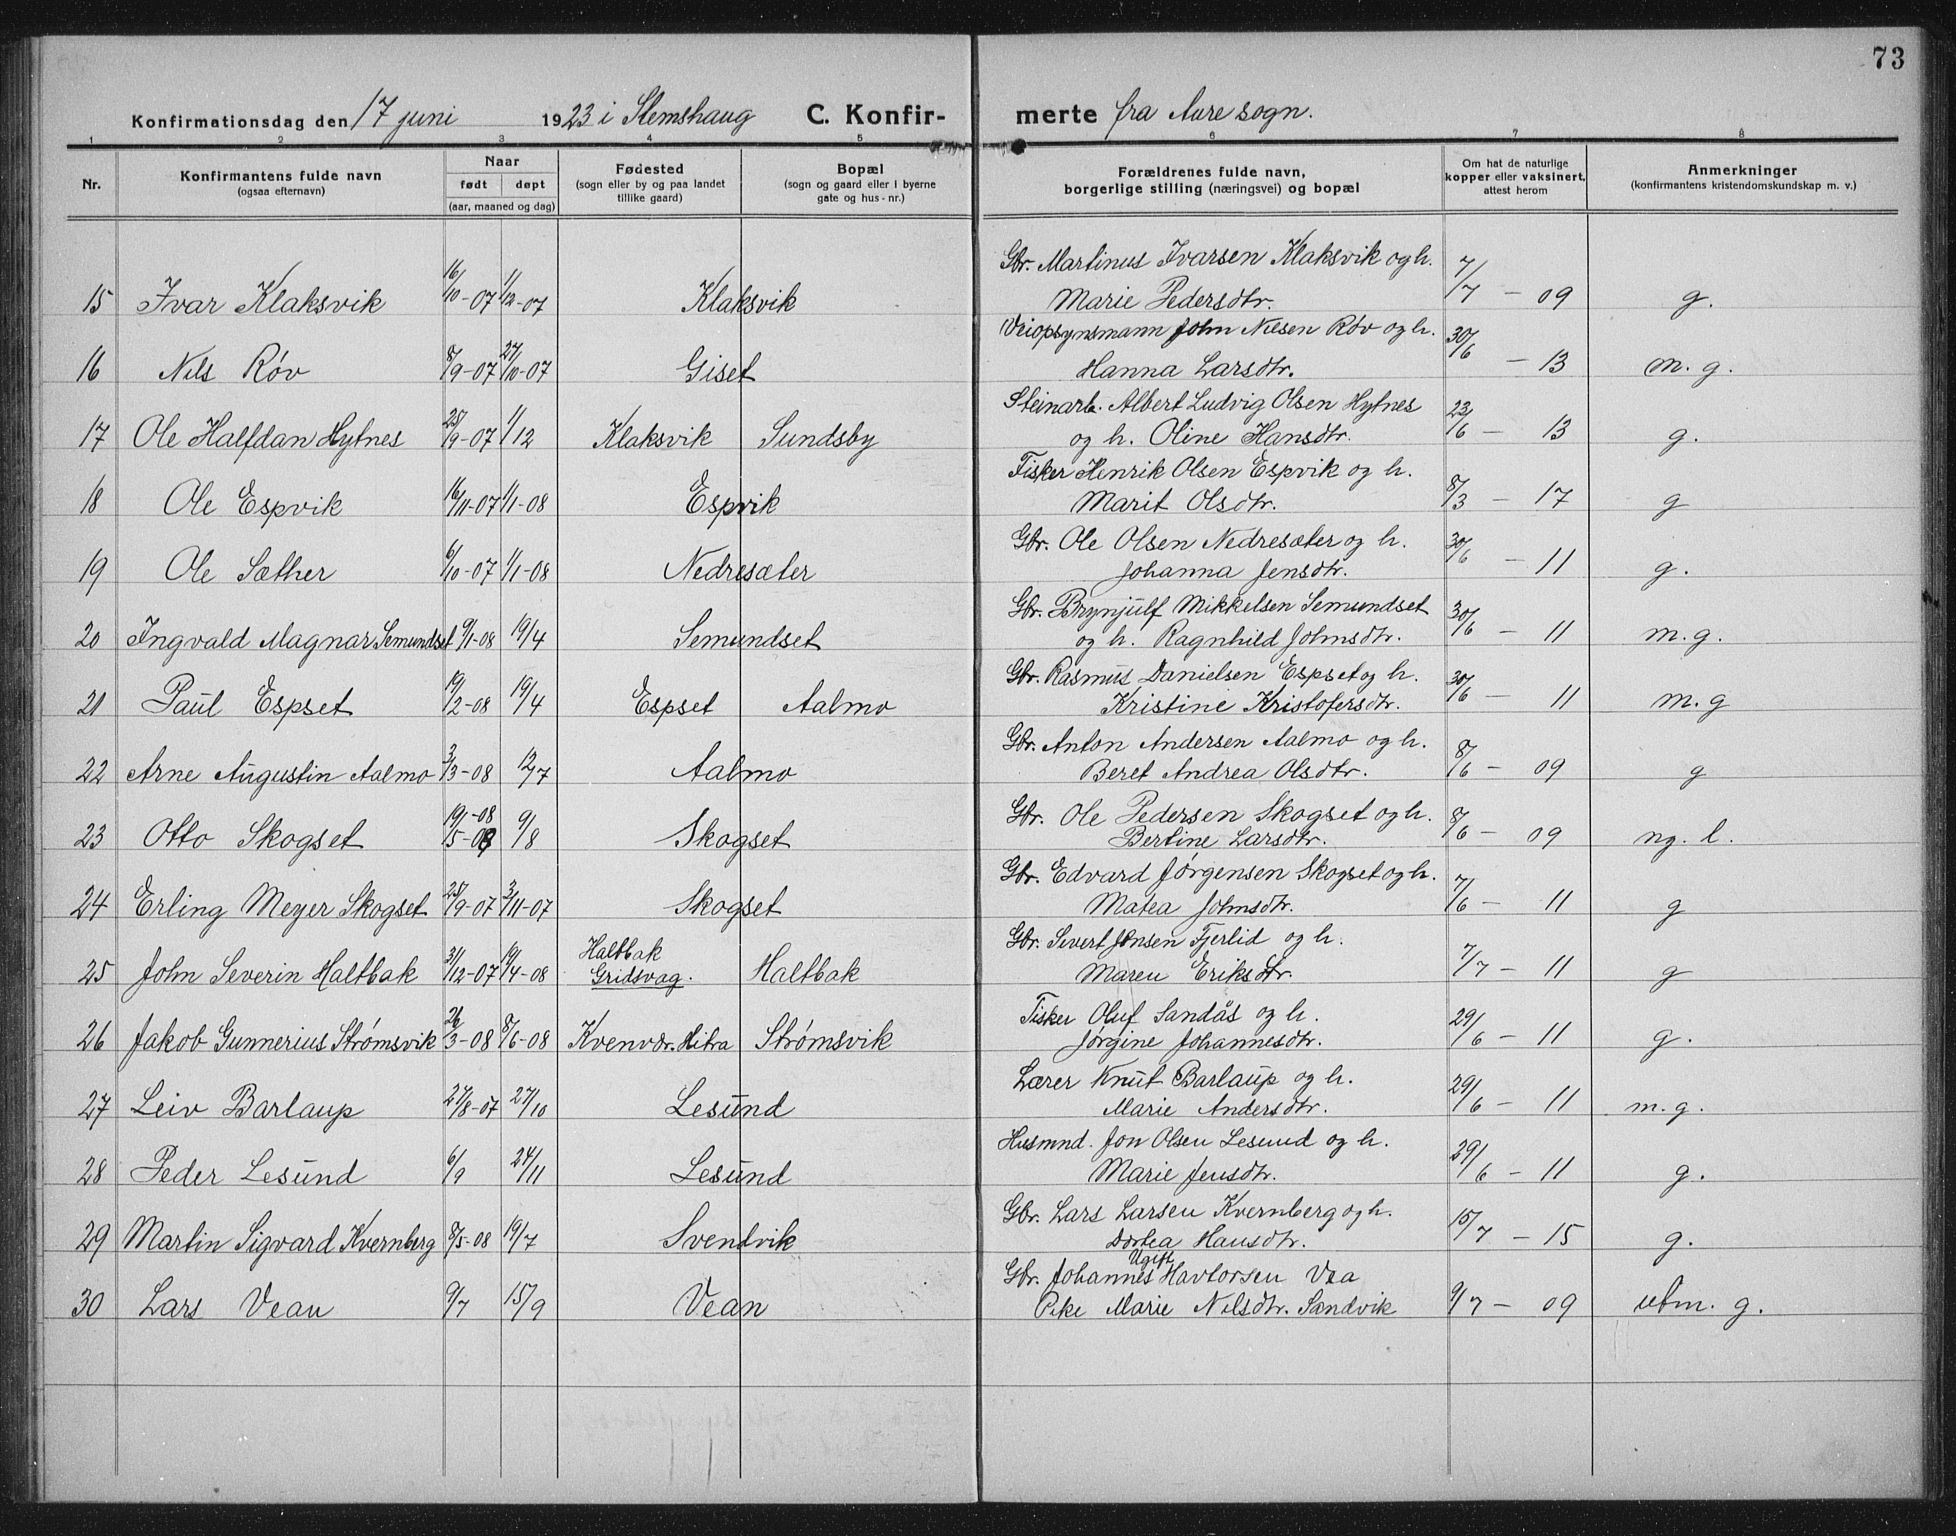 73
Konfirmationsdag den 17 juni 1923 i Stemshaug C. Konfir- merte fra Aure sogn.
1 2 3 4 5 6 7 8
Nr. Konfirmantens fulde navn (ogsaa efternavn) Naar født døpt (aar, maaned og dag) Fødested (sogn eller by og paa landet tillike gaard) Bopæl (sogn og gaard eller i byerne gate og hus-nr.) Forældrenes fulde navn, borgerlige stilling (næringsvei) og bopæl Om hat de naturlige kopper eller vaksinert, attest herom Anmerkninger (konfirmantens kristendomskundskap m. v.)
Gbr. Martinus Ivarsen Klaksvik og h.
15 Ivar Klaksvik 16/10-07 1/12-07 Klaksvik Marie Pedersdtr. 7/7 - 09 g.
Veiopsynsmann John Nilsen Røv og h.
16 Nils Røv 8/9-07 27/10-07 Giset Hanna Larsdtr. 30/6 - 13 m. g.
Steinarb. Albert Ludvig Olsen Hytnes
17 Ole Halfdan Hytnes 25/9-07 1/12 Klaksvik Sundsby og h. Oline Hansdtr. 23/6 - 13 g.
Fisker Henrik Olsen Espvik og h.
18 Ole Espvik 16/11-07 1/1-08 Espvik Marit Olsdtr. 8/3 - 17 g
Gbr. Ole Olsen Nedresæter og h.
19 Ole Sæther 6/10-07 1/1-08 Nedresæter Johanna Jensdtr. 30/6 - 11 g.
Gbr. Brynjulf Mikkelsen Semundset
20 Ingvald Magnar Semundset 9/1-08 19/4 Semundset og h. Ragnhild Johnsdtr. 30/6 - 11 m. g.
Gbr. Rasmus Danielsen Espset og h.
21 Paul Espset 19/2-08 19/4 Espset Aalmo Kristine Kristofersdtr. 30/6 - 11 m. g
Gbr. Anton Andersen Aalmo og h.
22 Arne Augustin Aalmo 3/3-08 12/7 Aalmo Beret Andrea Olsdtr. 8/6 - 09 g
Gbr. Ole Pedersen Skogset og h.
23 Otto Skogset 19/5-08 9/8 Skogset Bertine Larsdtr. 8/6 - 09 ng. l.
Gbr. Edvard Jørgensen Skogset og h.
24 Erling Meyer Skogset 25/9-07 3/11-07 Skogset Matea Johnsdtr. 7/6 - 11 g
Haltbak Gbr. Sivert Jonsen Fjerlid og h.
25 John Severin Haltbak 31/12-07 19/4-08 Gridsvag. Haltbak Maren Eriksdtr. 7/7 - 11 g
Fisker Oluf Sandås og h.
26 Jakob Gunnerius Strømsvik 26/3-08 8/6-08 Kvenvær. Hitra Strømsvik Jørgine Johannesdtr. 29/6 - 11 g.
Lærer Knut Barlaup og h.
27 Leiv Barlaup 27/8-07 27/10 Lesund Marie Andersdtr. 29/6 - 11 m. g.
Husmnd. Jon Olsen Lesund og h.
28 Peder Lesund 6/9 24/11 Lesund Marie Jensdtr. 29/6 - 11 g.
Gbr. Lars Larsen Kvernberg og h.
29 Martin Sigvard Kvernberg 8/5-08 19/7 Svendvik Dortea Hansdtr. 15/7 - 15 g.
Gbr. Johannes Havtorsen Vea
Ugift
30 Lars Vean 9/7 15/9 Vean Pike Marie Nilsdtr. Sandvik 9/7 - 09 utm. g.